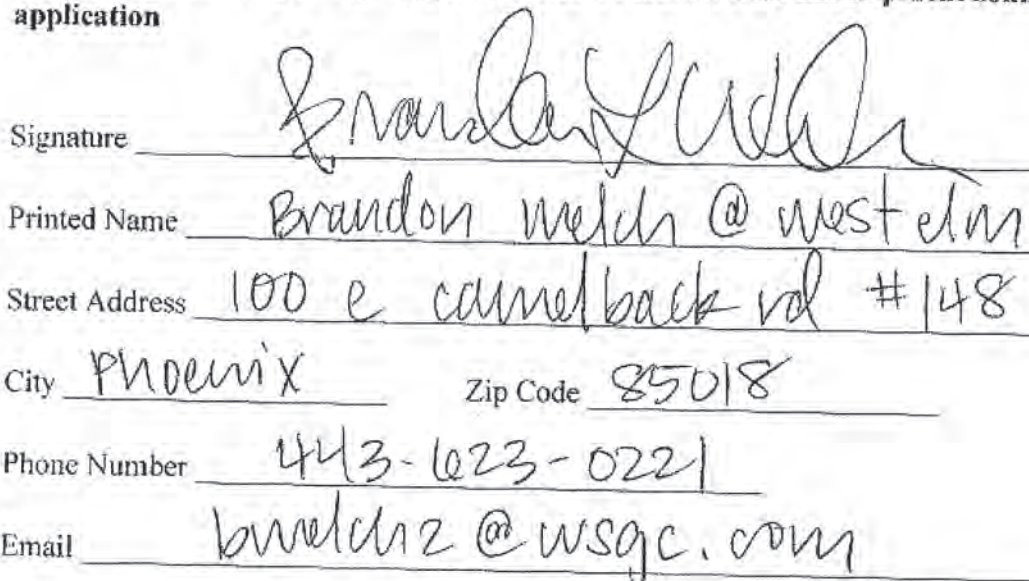 application
Signature Brandon Welch
Printed Name Brandon Welch @ west elm
Street Address 100 e camelback rd #148
City Phoenix Zip Code 85018
Phone Number 443-623-0221
Email bwelch2@wsgc.com